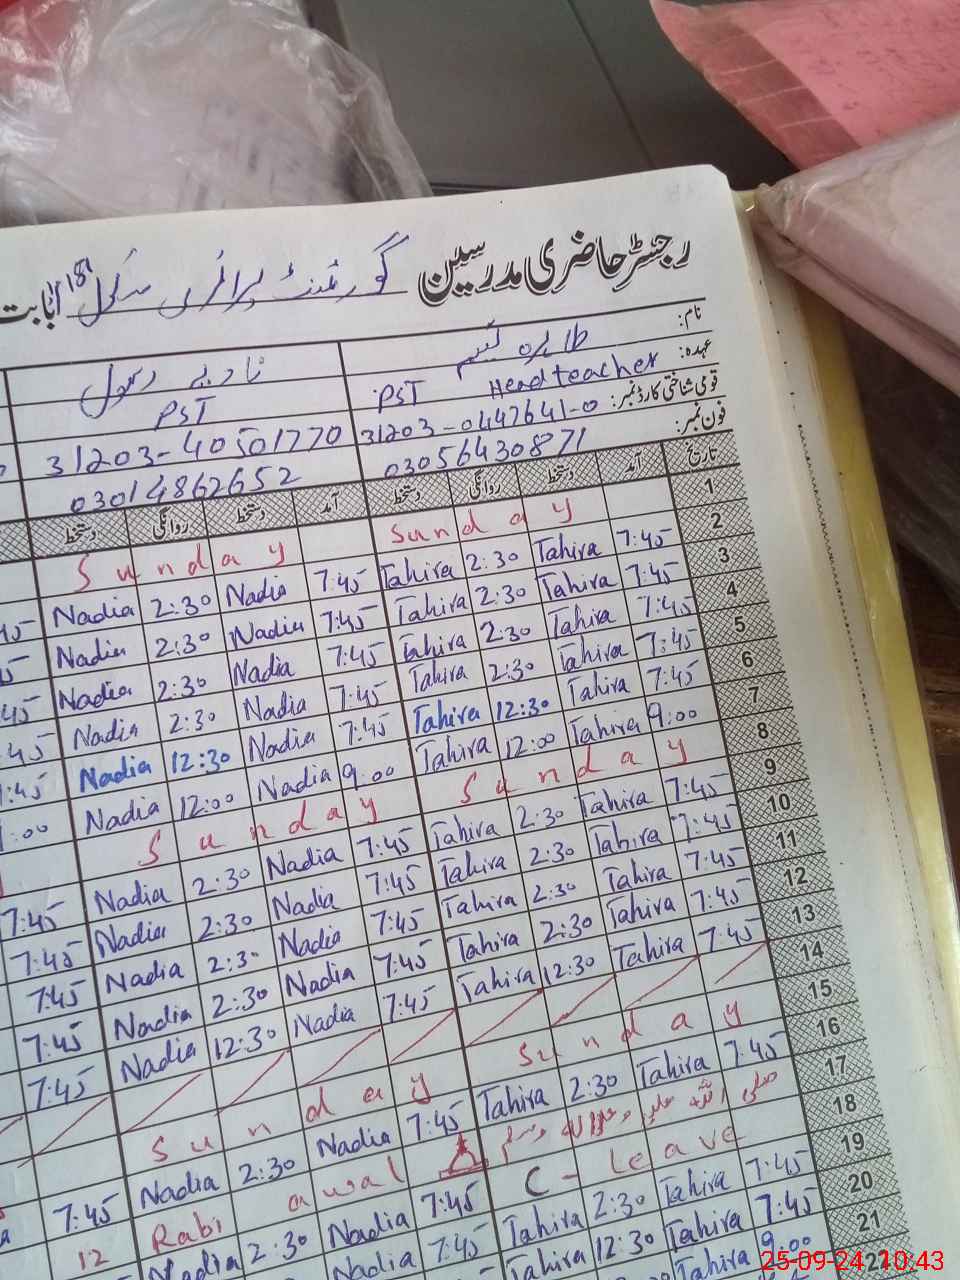 رجسٹر حاضری مدرسین گورنمنٹ پرائمری سکول بابت
نام: طاہرہ نادیہ رسول
عہدہ: PST Headteacher PST
قومی شناختی کارڈ نمبر: 31203-0447641-0 31203-40501770
فون نمبر: 03056430871 03014862652
تاریخ آمد دستخط روانگی دستخط آمد دستخط روانگی دستخط
1 Sunday Sunday
2 7:45 Tahira 2:30 Tahira 7:45 Nadia 2:30 Nadia
3 7:45 Tahira 2:30 Tahira 7:45 Nadia 2:30 Nadia
4 7:45 Tahira 2:30 Tahira 7:45 Nadia 2:30 Nadia
5 7:45 Tahira 2:30 Tahira 7:45 Nadia 2:30 Nadia
6 7:45 Tahira 12:30 Tahira 7:45 Nadia 12:30 Nadia
7 9:00 Tahira 12:00 Tahira 9:00 Nadia 12:00 Nadia
8 Sunday Sunday
9 7:45 Tahira 2:30 Tahira 7:45 Nadia 2:30 Nadia 7:45
10 7:45 Tahira 2:30 Tahira 7:45 Nadia 2:30 Nadia 7:45
11 7:45 Tahira 2:30 Tahira 7:45 Nadia 2:30 Nadia 7:45
12 7:45 Tahira 2:30 Tahira 7:45 Nadia 2:30 Nadia 7:45
13 7:45 Tahira 12:30 Tahira 7:45 Nadia 12:30 Nadia 7:45
14
15 Sunday Sunday
16 7:45 Tahira 2:30 Tahira 7:45 Nadia 2:30 Nadia 7:45
17 صلی اللہ علیہ وعلی الہ وسلم awal Rabi 12
18 C - Leave 7:45 Nadia 2:30 Nadia
19 7:45 Tahira 2:30 Tahira 7:45
20 7:45 Tahira 12:30 Tahira
21 9:00
25-09-24 10:43